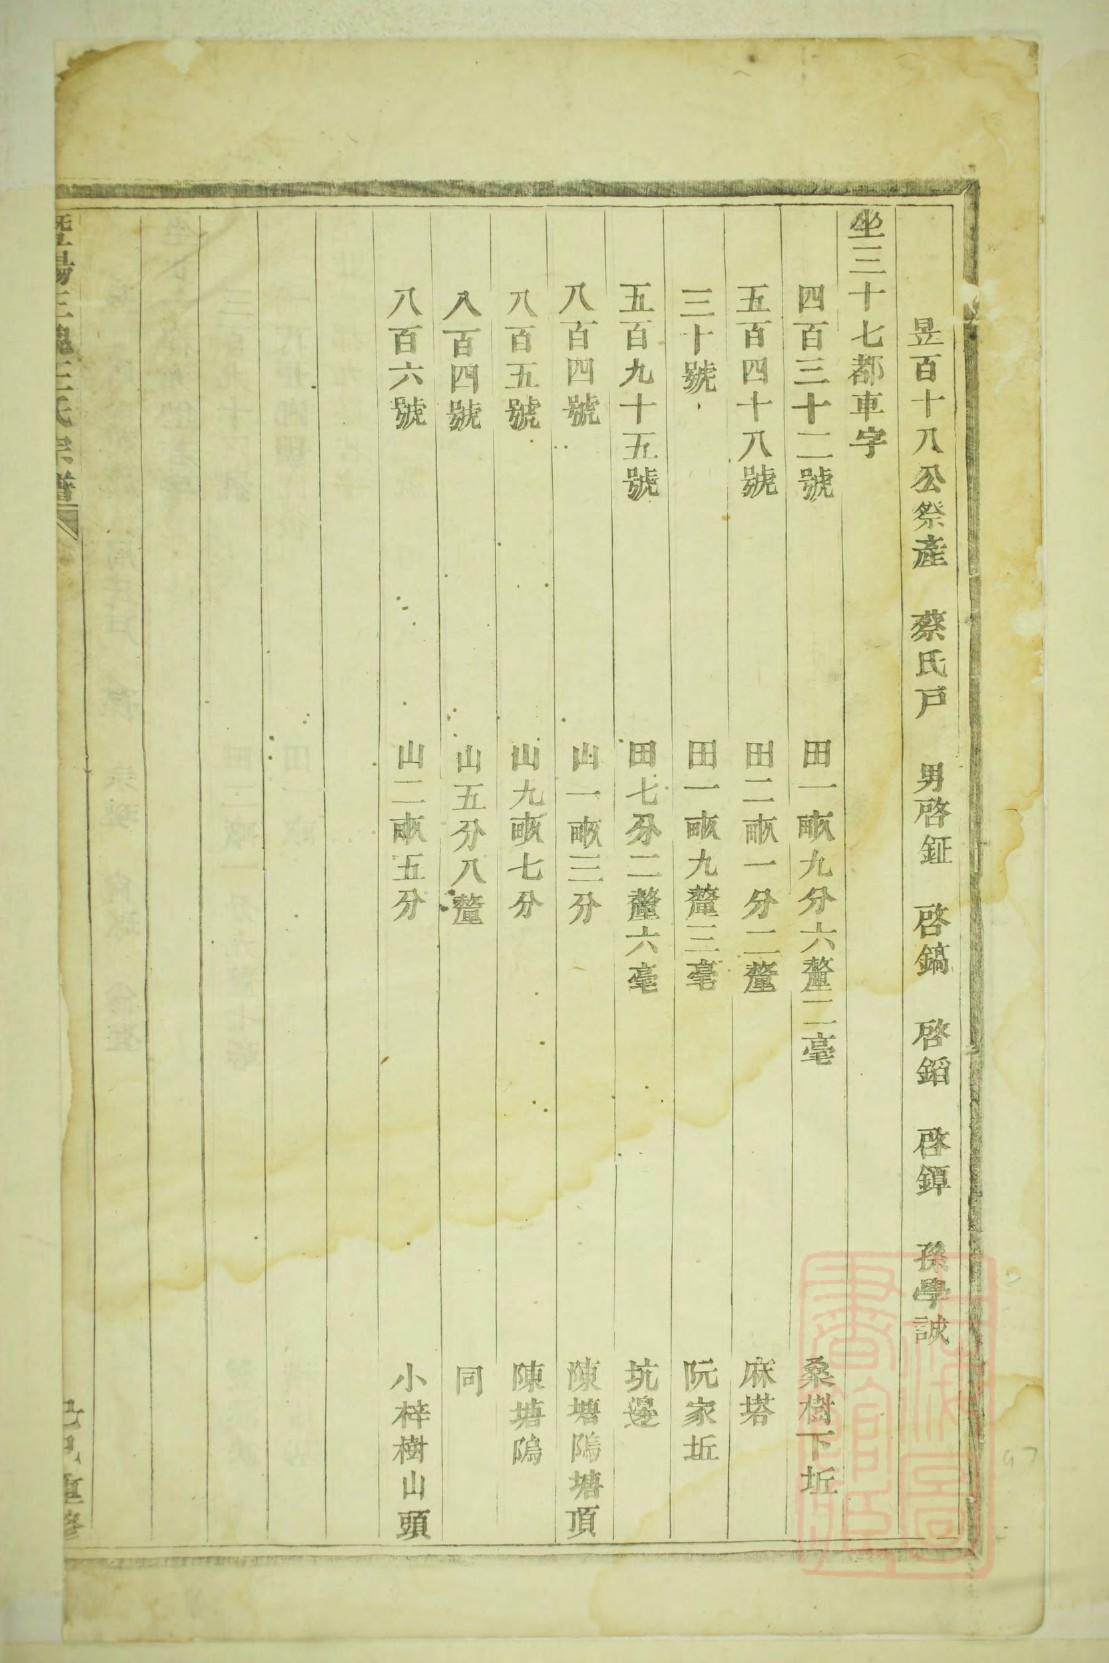 昱百十八公祭產 蔡氏戶 男啓鉦 啓鎬 啓鎾 啓鐔 孫學誠
坐三十七都車字
四百三十二號 田一畝九分六釐二毫 桑樹下坵
五百四十八號 田二畝一分二釐 麻塔
三十號 田一畝九釐三毫 阮家坵
五百九十五號 田七分二釐六毫 坑邊
八百四號 山一畝三分 陳塘隝塘頂
八百五號 山九畝七分 陳塘隝
八百四號 山五分八釐 同
八百六號 山二畝五分 小梓樹山頭
暨陽三槐王氏宗譜
己巳重修